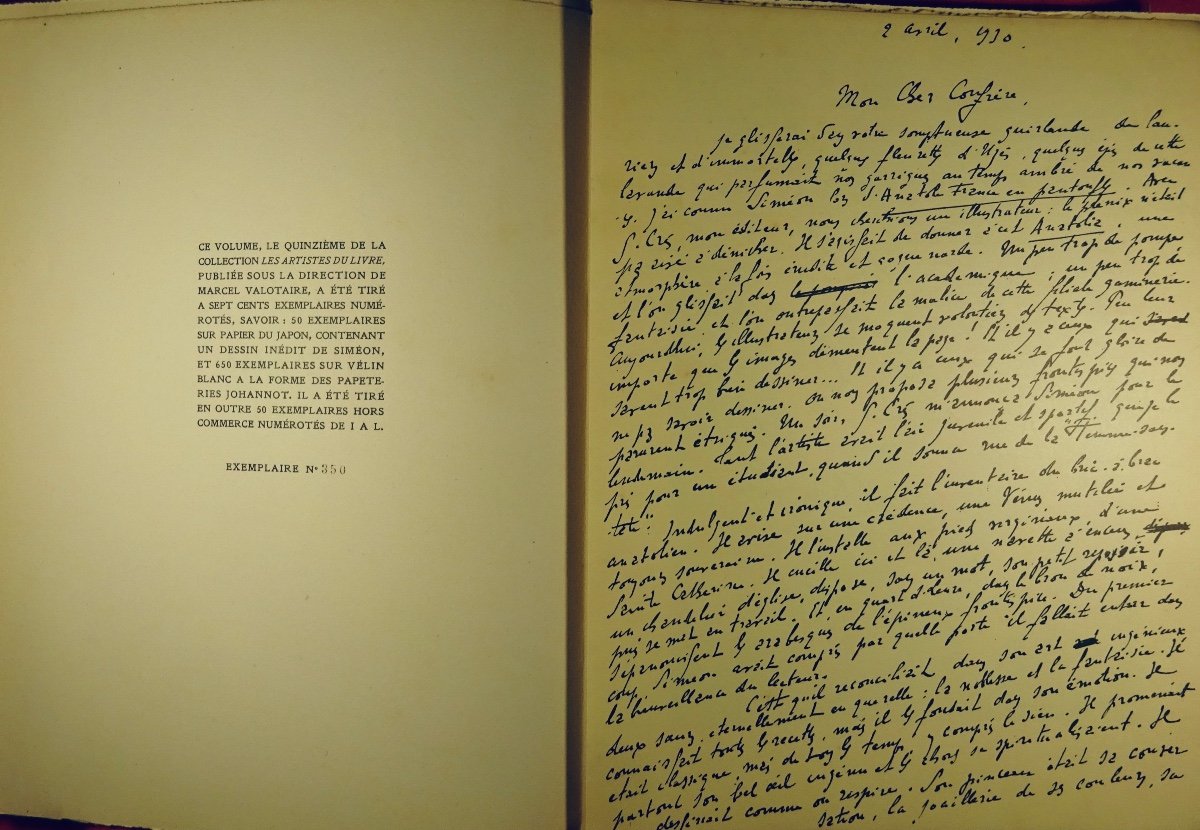 CE VOLUME, LE QUINZIÈME DE LA
COLLECTION LES ARTISTES DU LIVRE,
PUBLIÉE SOUS LA DIRECTION DE
MARCEL VALOTAIRE, A ÉTÉ TIRÉ
A SEPT CENTS EXEMPLAIRES NUMÉ-
ROTÉS, SAVOIR : 50 EXEMPLAIRES
SUR PAPIER DU JAPON, CONTENANT
UN DESSIN INÉDIT DE SIMÉON,
ET 650 EXEMPLAIRES SUR VÉLIN
BLANC A LA FORME DES PAPETE-
RIES JOHANNOT. IL A ÉTÉ TIRÉ
EN OUTRE 50 EXEMPLAIRES HORS
COMMERCE NUMÉROTÉS DE I A L.
EXEMPLAIRE N° 350
2 avril, 930.
Mon Cher Confrère,
Je glisserai dans votre somptueuse guirlande de lau-
riers et d'immortelles, quelques fleurettes d'
lavande qui parfumait nos garrigues au temps ambré de nos vacan
J'ai connu Siméon lors d'Anatole France en pantoufles. Avec
G. Crès, mon éditeur, nous cherchions un illustrateur : le phénix n'était
pas aisé à dénicher. Il s'agissait de donner à cet Anatolia, une
atmosphère à la fois érudite et goguenarde. Un peu trop de pompe
et l'on glissait dans l'académique ; un peu trop de
fantaisie et l'on outrepassait la malice de cette filiale gaminerie.
Aujourd'hui, les illustrateurs se moquent volontiers des textes. Peu leur
importe que les images démentent la page ! Et il y a ceux qui
savent trop bien dessiner... Et il y a ceux qui se font gloire de
ne pas savoir dessiner. On nous proposa plusieurs frontispices qui nous
parurent étriqués. Un soir, G. Crès m'annonça Siméon pour le
lendemain. Tant l'artiste avait l'air juvénile et sportif que je le
pris pour un étudiant, quand il sonna rue de la "Femme-sans-
tête".
Indulgent et ironique, il fait l'inventaire du bric-à-brac
anatolien. Il avise sur une crédence, une Vénus mutilée et
toujours souveraine. Il l'installe aux pieds virginaux d'une
Sainte Catherine. Il cueille ici et là une navette à encens
un chandelier d'église, dispose, sans un mot, son petit reposoir,
puis se met en travail. Et en un quart d'heure, dans le brou de noix,
s'épanouissent les arabesques de l'épineux frontispice. Du premier
coup, Siméon avait compris par quelle porte il fallait entrer dans
la bienveillance du lecteur.
C'est qu'il réconciliait dans son art ingénieux
deux sœurs éternellement en querelle : la noblesse et la fantaisie. Il
connaissait toutes les recettes, mais il les fondait dans son émotion. Il
était classique, mais de tous les temps, y compris le sien. Il promenait
partout son bel œil ingénu et les choses se spiritualisaient. Il
dessinait comme on respire. Son pinceau était sa conver
sation, la joaillerie de ses couleurs, sa